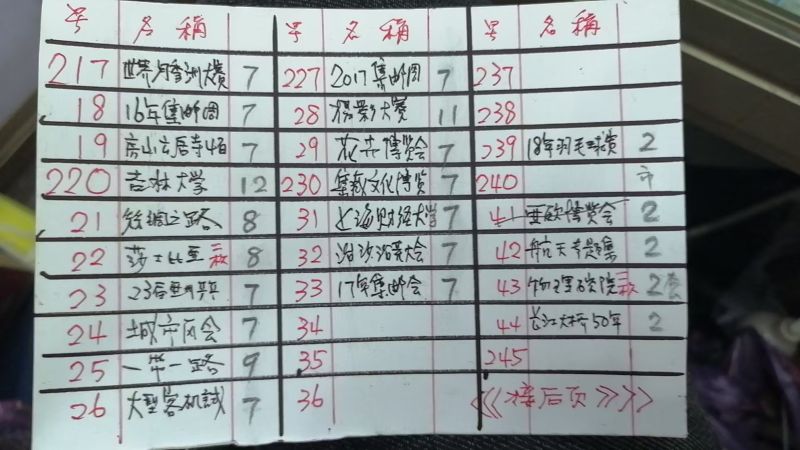 号 名稱 号 名稱 号 名稱
217 世界 大赛 7 227 2017集邮周 7 237
18 16年集邮周 7 28 摄影大赛 11 238
19 房山 7 29 花卉博览会 7 239 18年羽毛球赛 2
220 吉林大学 12 230 文化博览 7 240
21 丝绸之路 8 31 上海财经大学 7 41 亚欧博览会 2
22 莎士比亚 8 32 大会 7 42 航天专题集 2
23 7 33 17年集邮会 7 43 物理 2套
24 城市 会 7 34 44 长江大桥50年 2
25 一带一路 9 35 245
26 大型客机試 7 36 《《接后页》》》